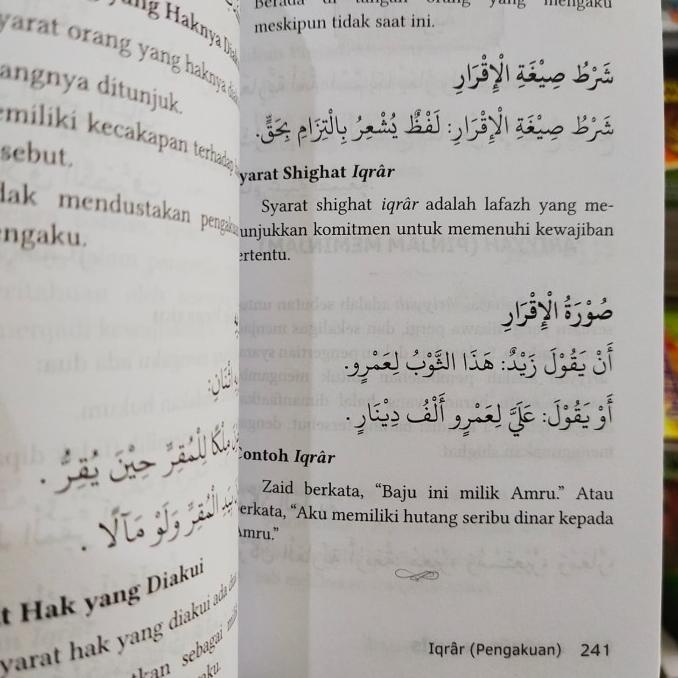 Haknya
yarat orang yang haknya
angnya ditunjuk.
emiliki kecakapan terhadap
sebut.
dak mendustakan
engaku.
مِلْكًا لِلْمُقِرِّ حِيْنَ يُقِرُّ .
الْمُقِرِّ وَلَوْ مَآلًا .
t Hak yang Diakui
yarat hak yang diakui ada
sebagai
yang mengaku
meskipun tidak saat ini.
شَرْطُ صِيْغَةِ الْإِقْرَارِ
شَرْطُ صِيْغَةِ الْإِقْرَارِ: لَفْظٌ يُشْعِرُ بِالْتِزَامِ بِحَقٍّ.
yarat Shighat Iqrâr
Syarat shighat iqrâr adalah lafazh yang me-
unjukkan komitmen untuk memenuhi kewajiban
ertentu.
صُوْرَةُ الْإِقْرَارِ
أَنْ يَقُوْلَ زَيْدٌ: هَذَا الثَّوْبُ لِعَمْرٍو.
أَوْ يَقُوْلَ: عَلَيَّ لِعَمْرٍو أَلْفُ دِيْنَارٍ.
ontoh Iqrâr
Zaid berkata, “Baju ini milik Amru.” Atau
erkata, “Aku memiliki hutang seribu dinar kepada
Amru.”
Iqrâr (Pengakuan) 241